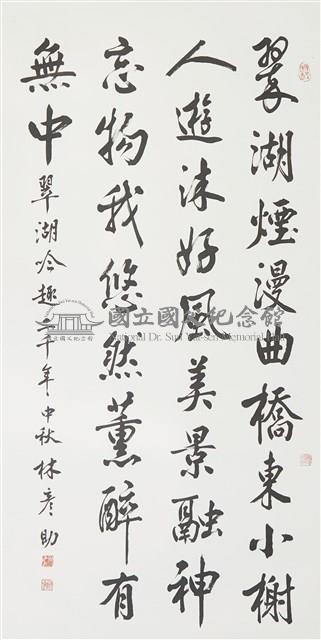 翠湖煙漫曲橋東小榭
人遊沐好風美景融神
忘物我悠然薰醉有
無中 翠湖吟趣 二千年中秋 林彥助
國立國父紀念館
National Dr. Sun Yat-sen Memorial Hall